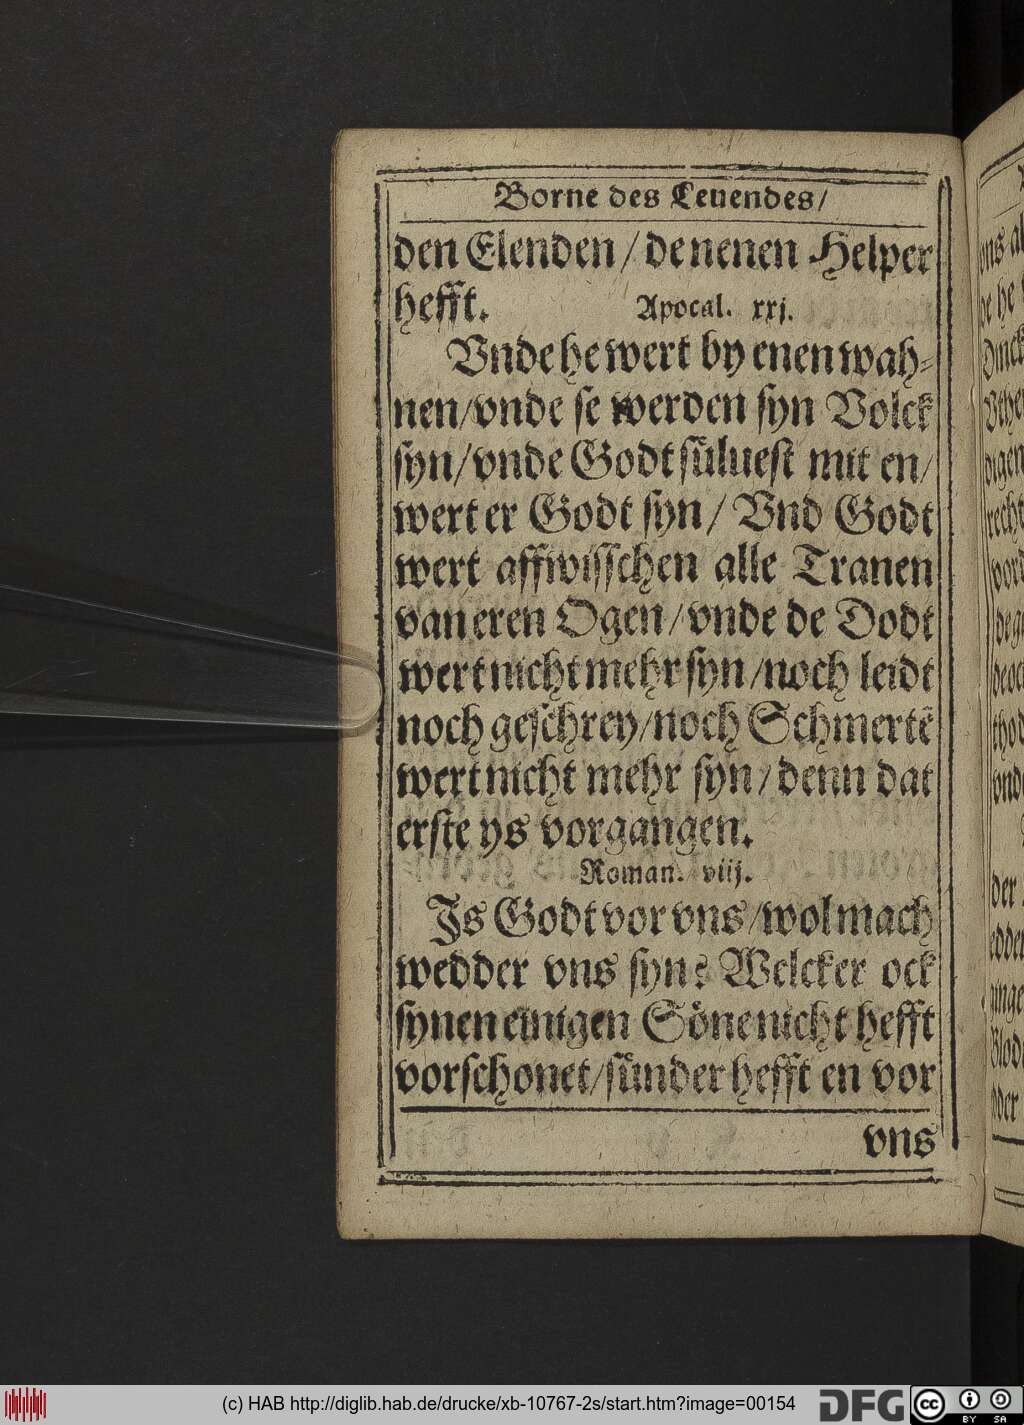 Borne des Leuendes/
den Elenden / de nenen Helper
hefft.          Apocal. xxj.
Vnde he wert by enen wah-
nen/vnde se werden syn Volck
syn/vnde Godt süluest mit en/
wert er Godt syn / Vnd Godt
wert affwisschen alle Tranen
van eren Ogen/vnde de Dodt
wert nicht mehr syn/noch leidt
noch geschrey/noch Schmertē
wert nicht mehr syn/denn dat
erste ys vorgangen.
Roman. viij.
Js Godt vor vns/wol mach
wedder vns syn? Welcker ock
synen einigen Söne nicht hefft
vorschonet/sünder hefft en vor
vns
(c) HAB http://diglib.hab.de/drucke/xb-10767-2s/start.htm?image=00154
DFG
cc
BY SA